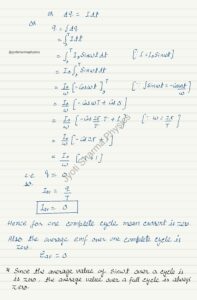 or dq = Idt
or
q = ∫dq
= ∫₀ᵀ I dt
@jyotisharmaphysics
= ∫₀ᵀ I₀ Sinωt dt [∵ I = I₀ Sinωt]
= I₀ ∫₀ᵀ Sinωt dt
= I₀/ω [-Cosωt]₀ᵀ [∵ ∫Sinωt = -Cosωt/ω]
= I₀/ω [-CosωT + Cos 0]
= I₀/ω [-Cos 2π/T · T + 1] [∵ ω = 2π/T]
= I₀/ω [-Cos 2π + 1]
= I₀/ω [-1 + 1]
i.e. q = 0
so
Iav = q/T
Iav = 0
Jyoti Sharma Physics
Hence for one complete cycle mean current is zero
Also the average emf over one complete cycle is
zero.
Eav = 0
* Since the average value of sinωt over a cycle is
is zero. the average value over a full cycle is always
zero.